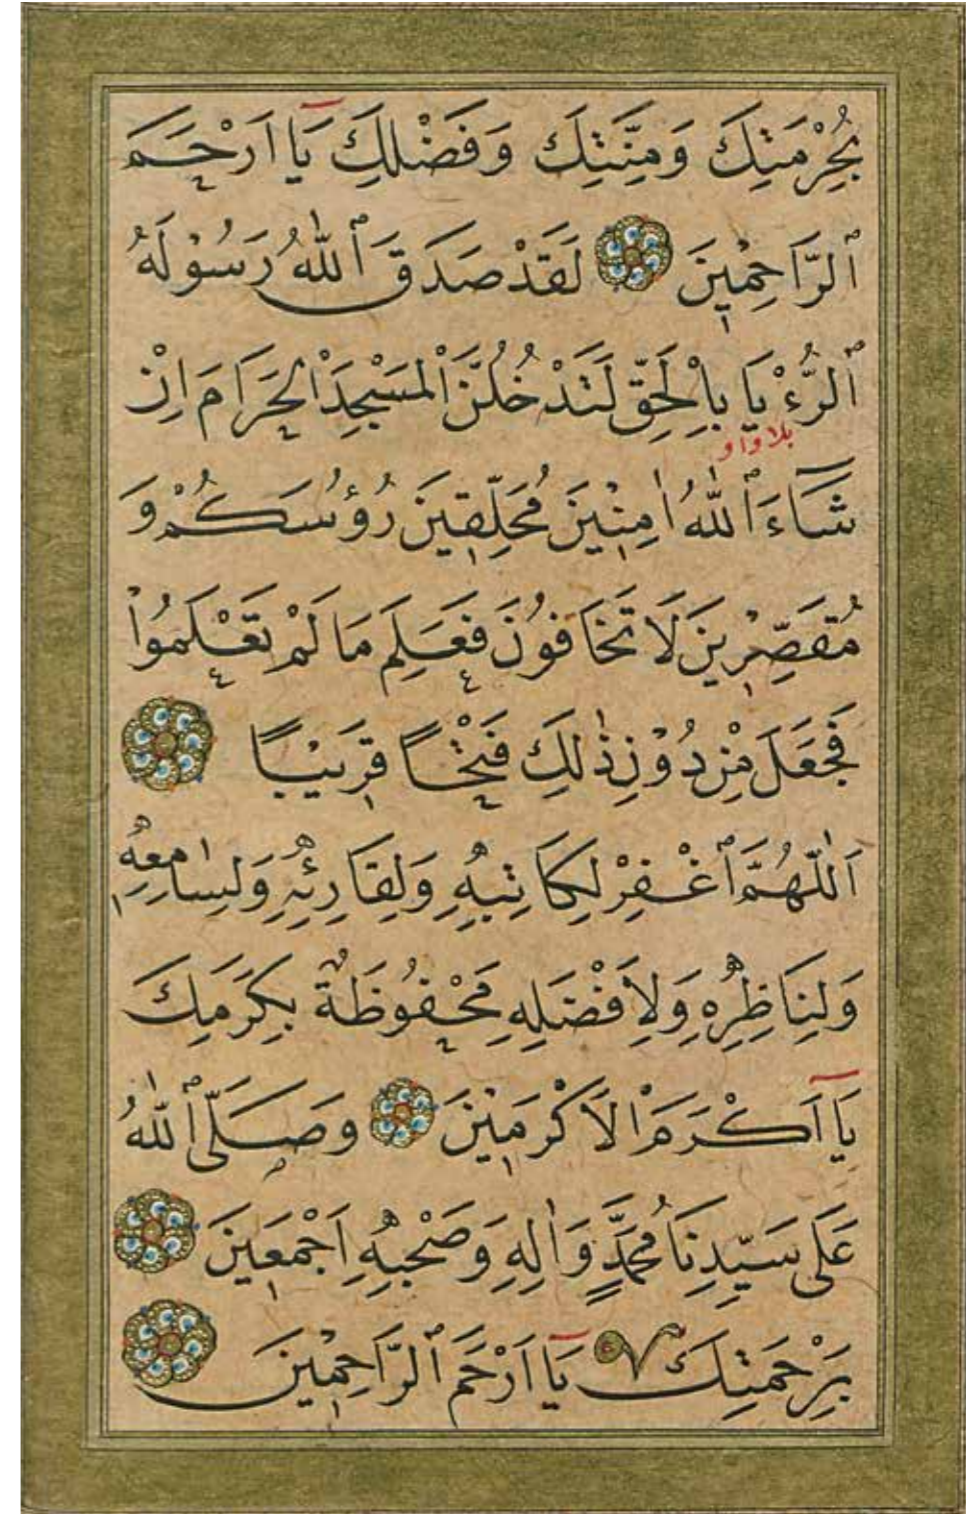 بِحُرْمَتِكَ وَمِنَّتِكَ وَفَضْلِكَ يَٓا اَرْحَمَ
ٱلرَّاحِمِينَ لَقَدْ صَدَقَ ٱللّٰهُ رَسُولَهُ
ٱلرُّءْيَا بِالْحَقِّ لَتَدْخُلُنَّ الْمَسْجِدَ الْحَرَامَ اِنْ
بلا واو
شَٓاءَ ٱللّٰهُ اٰمِنِينَ مُحَلِّقِينَ رُؤُسَكُمْ وَ
مُقَصِّرِينَ لَا تَخَافُونَ فَعَلِمَ مَا لَمْ تَعْلَمُوا
فَجَعَلَ مِنْ دُونِ ذٰلِكَ فَتْحًا قَرِيبًا
اَللّٰهُمَّ ٱغْفِرْ لِكَاتِبِهِ وَلِقَارِئِهِ وَلِسَامِعِهِ
وَلِنَاظِرِهِ وَلِاَفْضَلِهِ مَحْفُوظَةً بِكَرَمِكَ
يَٓا اَكْرَمَ الْاَكْرَمِينَ وَصَلَّى ٱللّٰهُ
عَلَى سَيِّدِنَا مُحَمَّدٍ وَاٰلِهِ وَصَحْبِهِ اَجْمَعِينَ
بِرَحْمَتِكَ يَٓا اَرْحَمَ ٱلرَّاحِمِينَ